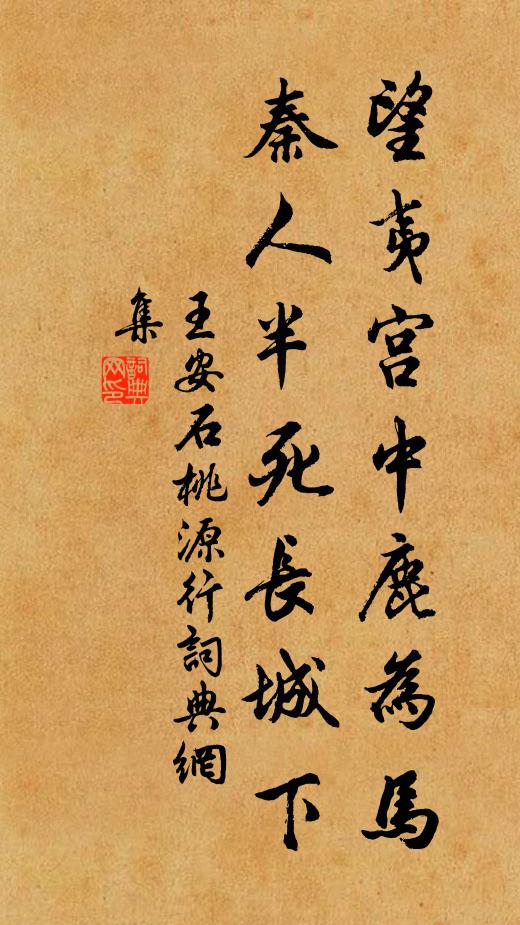 望夷宮中鹿為馬
秦人半死長城下
王安石桃源行詞典網
集
詞典
网印